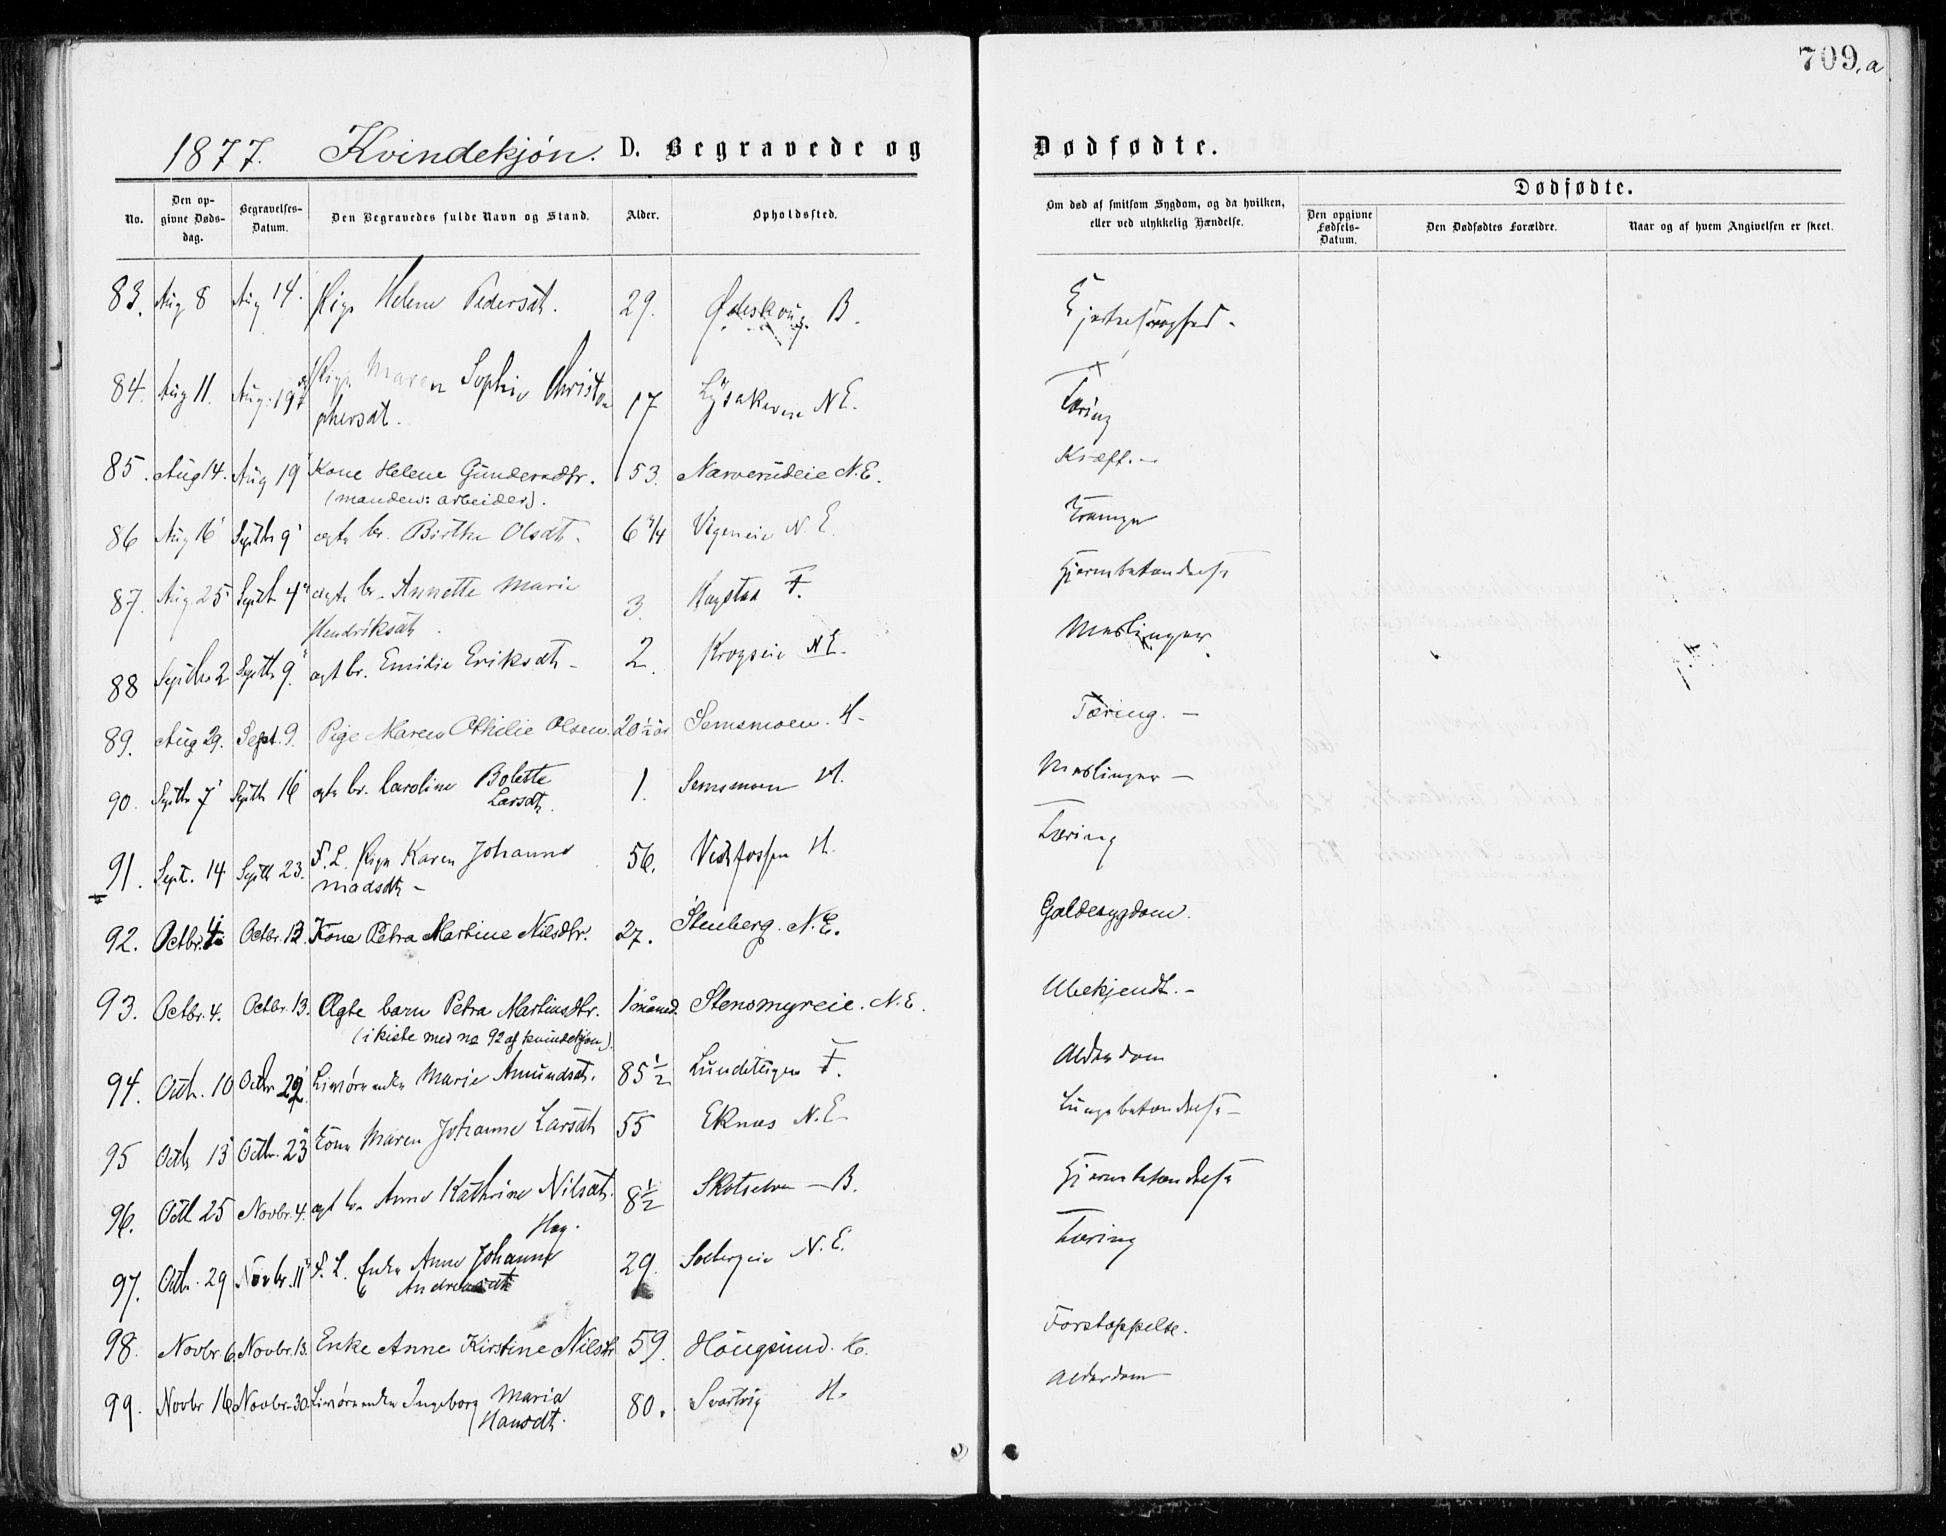 709.a
1877. Kvindekjøn. D. Begravede og Dødfødte.
No. Den opgivne Dødsdag. Begravelses-Datum. Den Begravedes fulde Navn og Stand. Alder. Opholdssted. Om død af smitsom Sygdom, og da hvilken, eller ved ulykkelig Hændelse. Dødfødte. Den opgivne Fødsels-Datum. Den Dødfødtes Forældre. Naar og af hvem Angivelsen er skeet.
83. Aug 8 Aug 14. Pige Helene Pedersdt. 29. B.
84. Aug 11. Aug. 19 Pige Maren Sophie Christo
phersdt. 17 Lysakereie N.E. Tæring
85. Aug 14. Aug 19 Kone Helene Gundersdtr. 53. Narverudeie N.E. Kræft.
(manden: arbeider).
86 Aug 16 Septbr 9 ægte br. Birthe Olsdt. 6 3/4 Vigeneie N.E. Krampe
87. Aug. 25 Septbr 4 ægte br. Annette Marie
Hendriksdt. 3. Hagstad F. Hjernebetændelse
88 Septbr 2 Septbr 9. ægt br. Emilie Eriksdt 2. Krogseie N.E. Meslinger
89. Aug 29. Sept. 9. Pige Maren Othilie Olsen. 20 1/2 år Semsmoen. H. Tæring.
90. Septbr 7 Septbr 16 ægte br. Caroline Bolette
Larsdt. 1. Semsmoen H. Meslinger
91. Sept. 14 Septb 23. F. L. Pige Karen Johanne
Madsdt 56. Vestfossen H. Tæring
92. Octbr. 4 Octbr. 13 Kone Petra Martine Nilsdtr. 27. Stenberg. N.E. Galdesygdom.
93. Octbr. 4. Octbr. 13. Ægte barn Petra Martinsdtr. 1 måned. Stensmyreie. N.E. Ubekjendt.
(i kiste med no 92 af kvindekjøn).
94. Octbr. 10 Octbr 22 Livøre enke Marie Amundsdt. 85 1/2 Lundeteigen F. Alderdom
95 Octb 13 Octbr. 23 Kone Maren Johanne Larsdt 55 Eknes N.E. Lungebetændelse
96. Octb 25 Novbr. 4. ægt br Anne Kathrine Nilsdt. 8 1/2 Skotselven B. Hjernebetændelse
Hag.
97. Octbr. 29 Novbr. 11 F. L. Enke Anne Johanne
Andreasdt 29. Solbergeie N.E. Tæring
98. Novbr. 6. Novbr. 13. Enke Anne Kirstine Nilsdtr 59. Hougsund. H. Forstoppelse.
99. Novbr 16 Novbr. 30. Livøre enke Ingeborg Maria
Hansdt. 80. Svartvig H. Alderdom